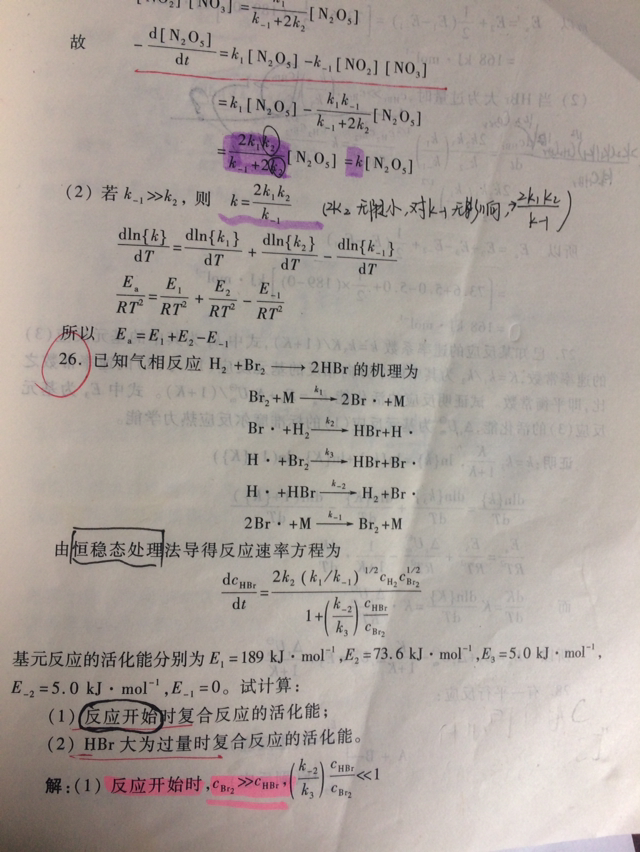 [NO₂][NO₃]=k₁/(k₋₁+2k₂)[N₂O₅]
故 -d[N₂O₅]/dt=k₁[N₂O₅]-k₋₁[NO₂][NO₃]
=k₁[N₂O₅]-k₁k₋₁/(k₋₁+2k₂)[N₂O₅]
=2k₁k₂/(k₋₁+2k₂)[N₂O₅]=k[N₂O₅]
(2) 若 k₋₁≫k₂, 则 k=2k₁k₂/k₋₁ (2k₂无限小,对k-1无影响,→2k₁k₂/k-1)
dln{k}/dT=dln{k₁}/dT+dln{k₂}/dT-dln{k₋₁}/dT
Eₐ/RT²=E₁/RT²+E₂/RT²-E₋₁/RT²
所以 Eₐ=E₁+E₂-E₋₁
26. 已知气相反应 H₂+Br₂⟶2HBr 的机理为
Br₂+M —k₁→ 2Br·+M
Br·+H₂ —k₂→ HBr+H·
H·+Br₂ —k₃→ HBr+Br·
H·+HBr —k₋₂→ H₂+Br·
2Br·+M —k₋₁→ Br₂+M
由恒稳态处理法导得反应速率方程为
dc_HBr/dt=2k₂(k₁/k₋₁)^1/2 c_H₂ c_Br₂^1/2/(1+(k₋₂/k₃)c_HBr/c_Br₂)
基元反应的活化能分别为 E₁=189 kJ·mol⁻¹,E₂=73.6 kJ·mol⁻¹,E₃=5.0 kJ·mol⁻¹,
E₋₂=5.0 kJ·mol⁻¹,E₋₁=0。试计算:
(1) 反应开始时复合反应的活化能;
(2) HBr 大为过量时复合反应的活化能。
解:(1) 反应开始时,c_Br₂≫c_HBr,(k₋₂/k₃)c_HBr/c_Br₂≪1